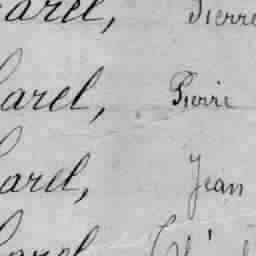 arel, Pierre
arel, Pierre
arel, Jean
arel